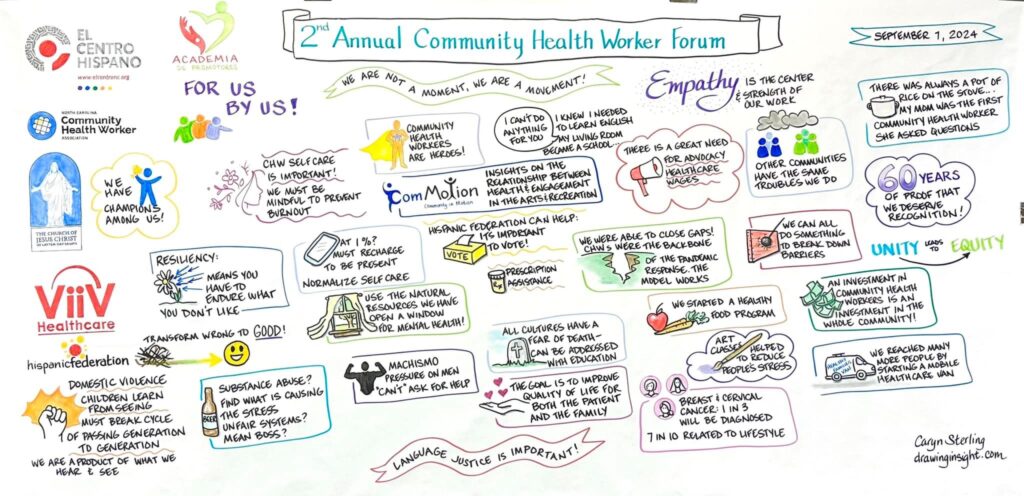 EL
CENTRO
HISPANO
www.elcentronc.org
ACADEMIA
DE PROMOTORES
2nd Annual Community Health Worker Forum
SEPTEMBER 7, 2024
FOR US
BY US!
WE ARE NOT A MOMENT, WE ARE A MOVEMENT!
Empathy IS THE CENTER
& STRENGTH OF
OUR WORK
THERE WAS ALWAYS A POT OF
RICE ON THE STOVE...
MY MOM WAS THE FIRST
COMMUNITY HEALTH WORKER
SHE ASKED QUESTIONS
NORTH CAROLINA
Community
Health Worker
ASSOCIATION
WE
HAVE
CHAMPIONS
AMONG US!
CHW SELF CARE
IS IMPORTANT!
WE MUST BE
MINDFUL TO PREVENT
BURNOUT
COMMUNITY
HEALTH
WORKERS
ARE HEROES!
I CAN'T DO
ANYTHING
FOR YOU
I KNEW I NEEDED
TO LEARN ENGLISH
MY LIVING ROOM
BECAME A SCHOOL...
ComMotion
Community in Motion
INSIGHTS ON THE
RELATIONSHIP BETWEEN
HEALTH & ENGAGEMENT
IN THE ARTS & RECREATION
THERE IS A GREAT NEED
FOR ADVOCACY
HEALTHCARE
WAGES
OTHER COMMUNITIES
HAVE THE SAME
TROUBLES WE DO
60 YEARS
OF PROOF THAT
WE DESERVE
RECOGNITION!
THE CHURCH OF
JESUS CHRIST
OF LATTER-DAY SAINTS
RESILIENCY:
MEANS YOU
HAVE TO
ENDURE WHAT
YOU DON'T LIKE
AT 1%?
MUST RECHARGE
TO BE PRESENT
NORMALIZE SELF CARE
HISPANIC FEDERATION CAN HELP:
ITS IMPORTANT
TO VOTE!
VOTE
Rx
PRESCRIPTION
ASSISTANCE
WE WERE ABLE TO CLOSE GAPS!
CHWs WERE THE BACKBONE
OF THE PANDEMIC
RESPONSE. THE
MODEL WORKS
WE CAN ALL
DO SOMETHING
TO BREAK DOWN
BARRIERS
UNITY LEADS TO EQUITY
ViiV
Healthcare
USE THE NATURAL
RESOURCES WE HAVE
OPEN A WINDOW
FOR MENTAL HEALTH!
WE STARTED A HEALTHY
FOOD PROGRAM
AN INVESTMENT IN
COMMUNITY HEALTH
WORKERS IS AN
INVESTMENT IN THE
WHOLE COMMUNITY!
hispanicfederation
TRANSFORM WRONG TO GOOD!
ALL CULTURES HAVE A
FEAR OF DEATH-
CAN BE ADDRESSED
WITH EDUCATION
ART
CLASSES HELPED
TO REDUCE
PEOPLES STRESS
WE REACHED MANY
MORE PEOPLE BY
STARTING A MOBILE
HEALTHCARE VAN
DOMESTIC VIOLENCE
CHILDREN LEARN
FROM SEEING
MUST BREAK CYCLE
OF PASSING GENERATION
TO GENERATION
WE ARE A PRODUCT OF WHAT WE
HEAR & SEE
BEER
SUBSTANCE ABUSE?
FIND WHAT IS CAUSING
THE STRESS
UNFAIR SYSTEMS?
MEAN BOSS?
MACHISMO
PRESSURE ON MEN
"CAN'T" ASK FOR HELP
THE GOAL IS TO IMPROVE
QUALITY OF LIFE FOR
BOTH THE PATIENT
AND THE FAMILY
BREAST & CERVICAL
CANCER: 1 IN 3
WILL BE DIAGNOSED
7 IN 10 RELATED TO LIFESTYLE
LANGUAGE JUSTICE IS IMPORTANT!
Caryn Sterling
drawinginsight.com